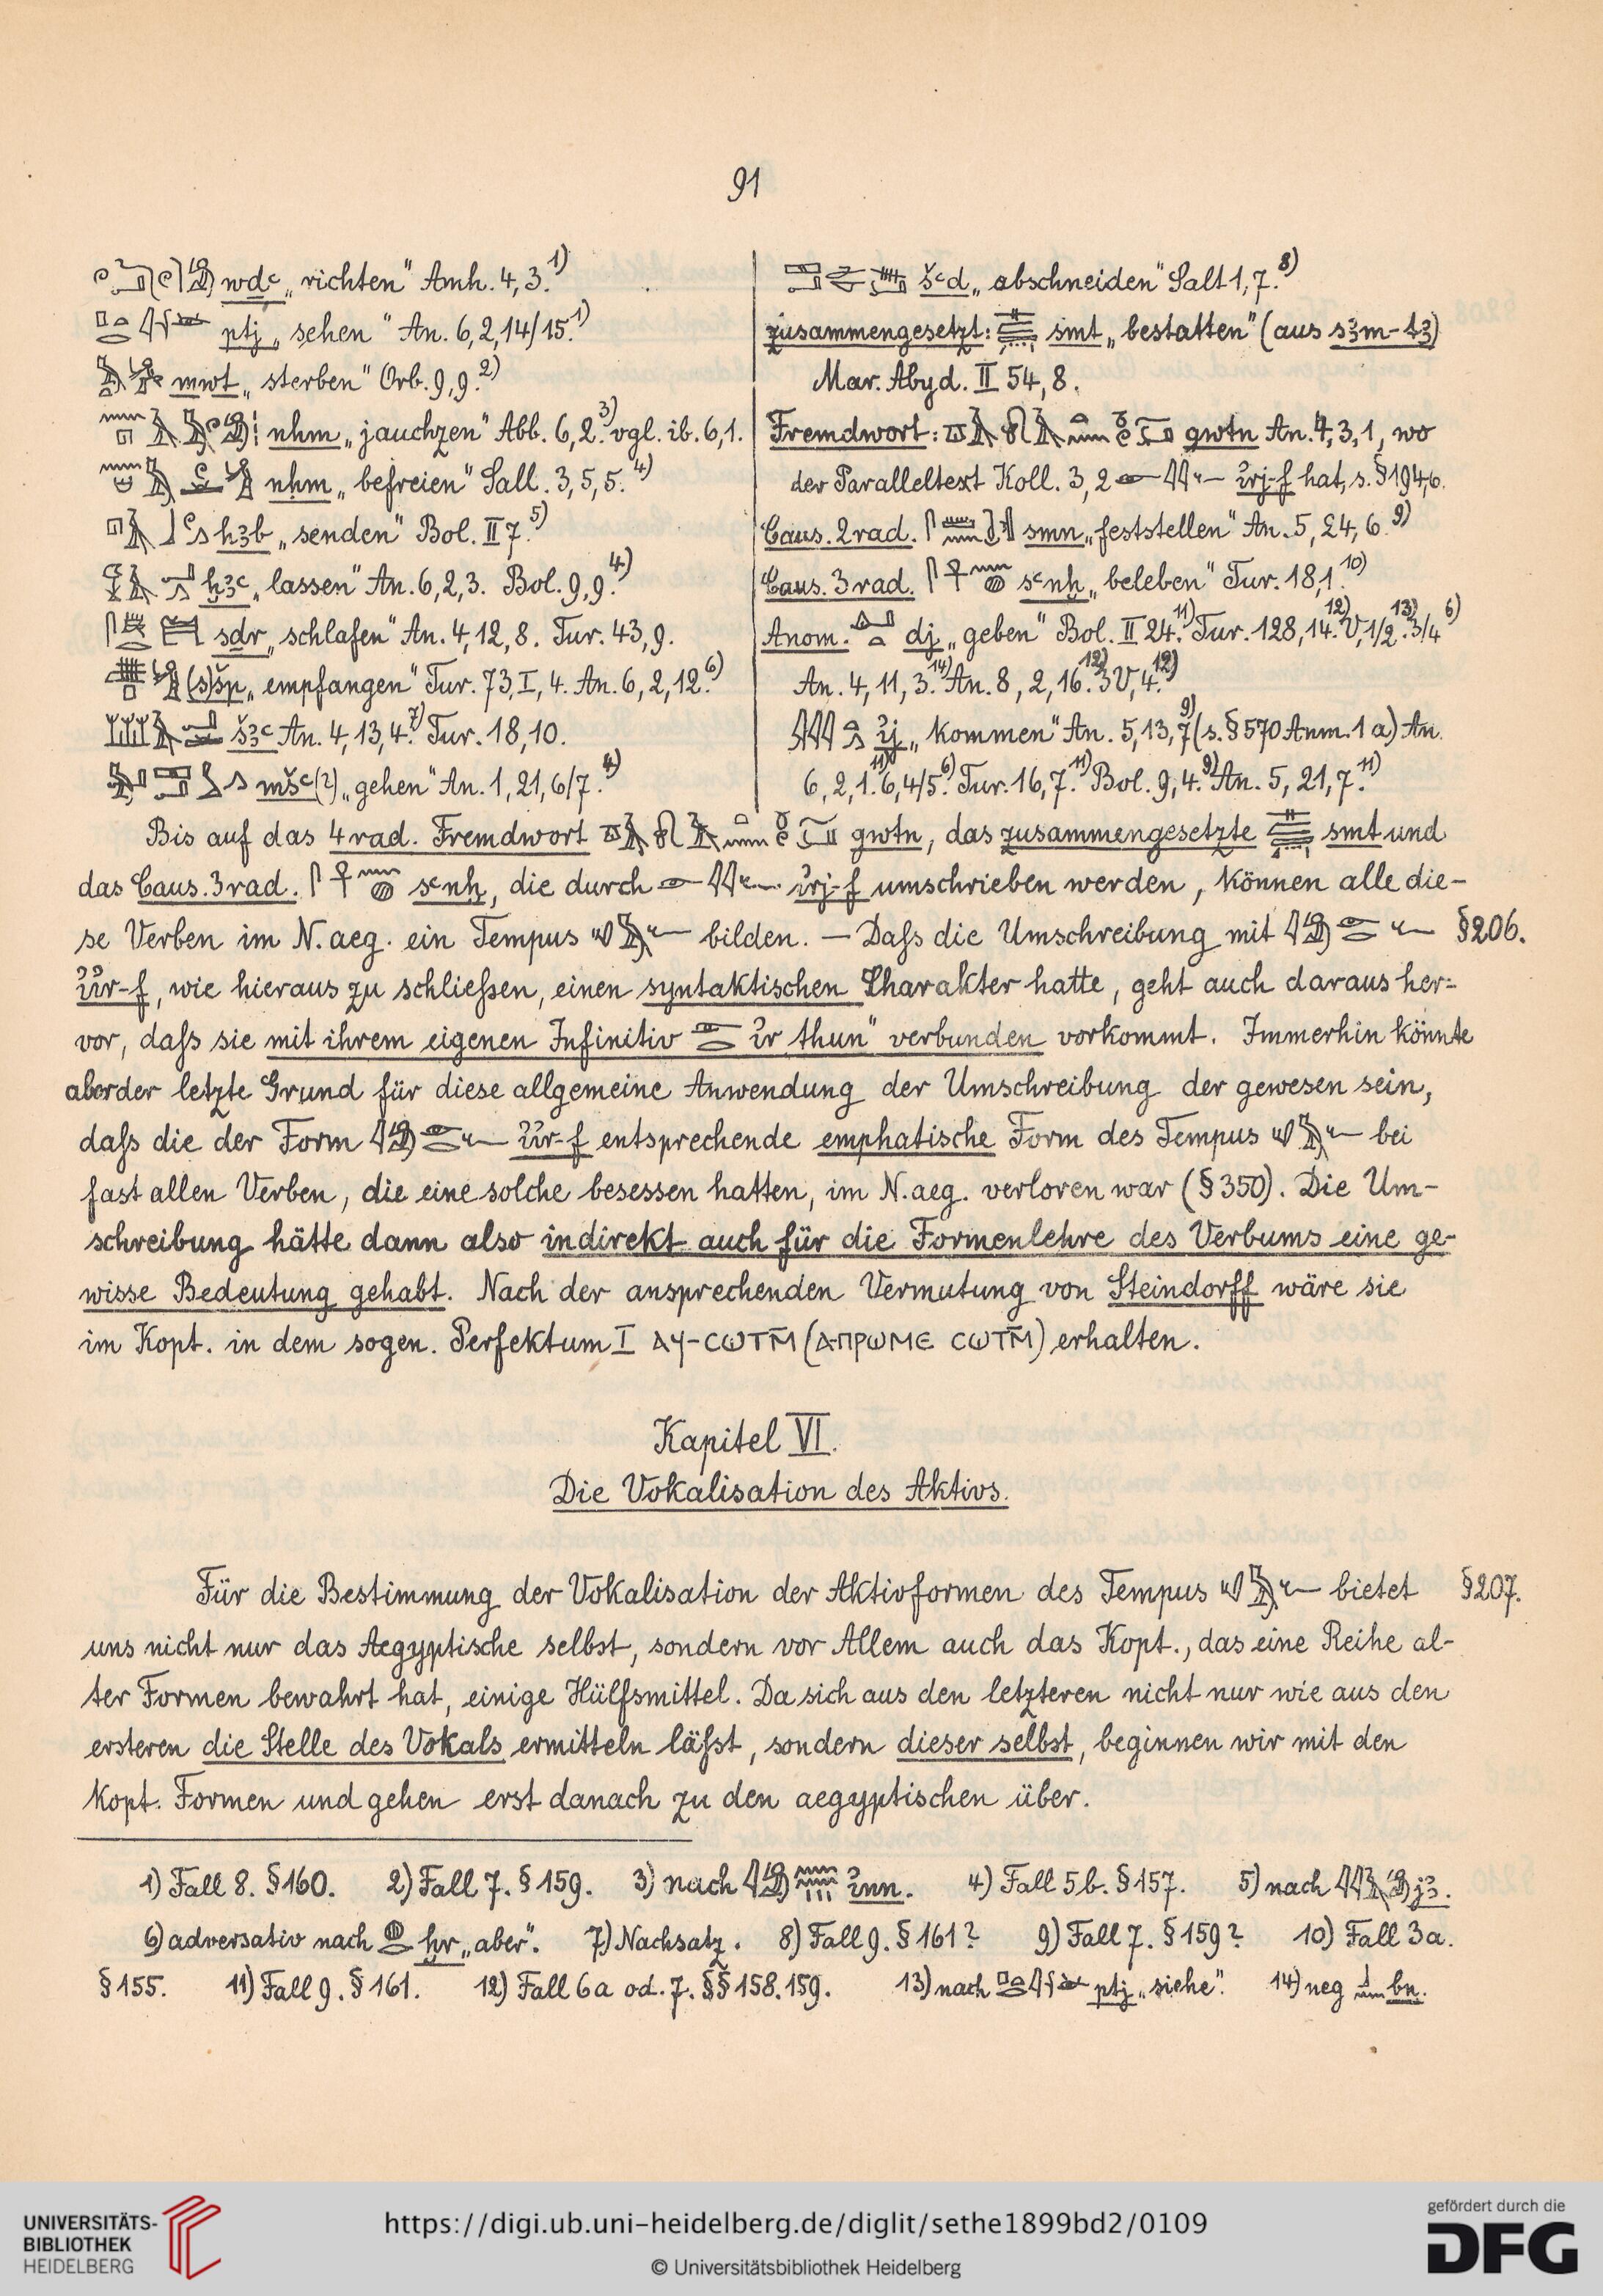 91
wdꜥ „richten" Amh. 4,3.¹⁾
ptj „sehen" An. 6,2,14/15.¹⁾
mwt „sterben" Orb. 9,9.²⁾
nhm „jauchzen" Abb. 6,2.³⁾ vgl. ib. 6,1.
nḥm „befreien" Sall. 3,5,5.⁴⁾
hꜣb „senden" Bol. II 7.⁵⁾
ḫꜣꜥ „lassen" An. 6,2,3. Bol. 9,9.⁴⁾
sḏr „schlafen" An. 4,12,8. Tur. 43,9.
(s)šp „empfangen" Tur. 73,I,4. An. 6,2,12.⁶⁾
šꜣꜥ An. 4,13,4.⁷⁾ Tur. 18,10.
mšꜥ(?) „gehen" An. 1,21,6/7.⁴⁾
šꜥd „abschneiden" Salt 1,7.⁸⁾
zusammengesetzt: smt „bestatten" (aus sꜣm-tꜣ)
Mar. Abyd. II 54,8.
Fremdwort: gwtn An. 4,3,1, wo
der Paralleltext Koll. 3,2 ı͗rj-f hat, s. §194,b.
Caus. 2rad. smn „feststellen" An. 5,24,6.⁹⁾
Caus. 3rad. sꜥnḫ „beleben" Tur. 18,1.¹⁰⁾
Anom. dj „geben" Bol. II 24.¹¹⁾ Tur. 128,14.¹²⁾ V,1/2.¹³⁾ 3/4⁶⁾
An. 4,11,3.¹⁴⁾ An. 8,2,16.¹²⁾ 3V,4.¹²⁾
ı͗j „kommen" An. 5,13,7⁹⁾ (s. §570 Anm. 1a) An.
6,2,1.¹¹⁾ 6,4/5.⁶⁾ Tur. 16,7.¹¹⁾ Bol. 9,4.⁹⁾ An. 5,21,7.¹¹⁾
Bis auf das 4rad. Fremdwort gwtn, das zusammengesetzte smt und
das Caus. 3rad. sꜥnḫ, die durch ı͗rj-f umschrieben werden, können alle die-
se Verben im N. aeg. ein Tempus bilden. — Daſs die Umschreibung mit §206.
ı͗ı͗r-f, wie hieraus zu schlieſsen, einen syntaktischen Charakter hatte, geht auch daraus her-
vor, daſs sie mit ihrem eigenen Infinitiv ı͗r „thun" verbunden vorkommt. Immerhin könnte
aber der letzte Grund für diese allgemeine Anwendung der Umschreibung der gewesen sein,
daſs die der Form ı͗ı͗r-f entsprechende emphatische Form des Tempus bei
fast allen Verben, die eine solche besessen hatten, im N. aeg. verloren war (§350). Die Um-
schreibung hätte dann also indirekt auch für die Formenlehre des Verbums eine ge-
wisse Bedeutung gehabt. Nach der ansprechenden Vermutung von Steindorff wäre sie
im Kopt. in dem sogen. Perfektum I ⲁϥ-ⲥⲱⲧⲙ̄ (ⲁ-ⲡⲣⲱⲙⲉ ⲥⲱⲧⲙ̄) erhalten.
Kapitel VI.
Die Vokalisation des Aktivs.
Für die Bestimmung der Vokalisation der Aktivformen des Tempus bietet §207.
uns nicht nur das Aegyptische selbst, sondern vor Allem auch das Kopt., das eine Reihe al-
ter Formen bewahrt hat, einige Hülfsmittel. Da sich aus den letzteren nicht nur wie aus den
ersteren die Stelle des Vokals ermitteln läſst, sondern dieser selbst, beginnen wir mit den
kopt. Formen und gehen erst danach zu den aegyptischen über.
1) Fall 8. §160. 2) Fall 7. §159. 3) nach ı͗nn. 4) Fall 5b. §157. 5) nach jꜣ.
6) adversativ nach ḫr „aber". 7) Nachsatz. 8) Fall 9. §161? 9) Fall 7. §159? 10) Fall 3a.
§155. 11) Fall 9. §161. 12) Fall 6a od. 7. §§158.159. 13) nach ptj „siehe". 14) neg bn.
UNIVERSITÄTS-
BIBLIOTHEK
HEIDELBERG
https://digi.ub.uni-heidelberg.de/diglit/sethe1899bd2/0109
© Universitätsbibliothek Heidelberg
gefördert durch die
DFG